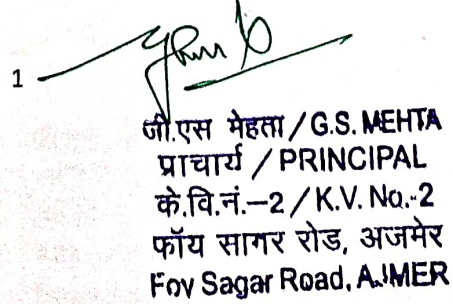 1
जी.एस मेहता / G.S. MEHTA
प्राचार्य / PRINCIPAL
के.वि.नं.–2 / K.V. No.-2
फॉय सागर रोड, अजमेर
Foy Sagar Road, AJMER